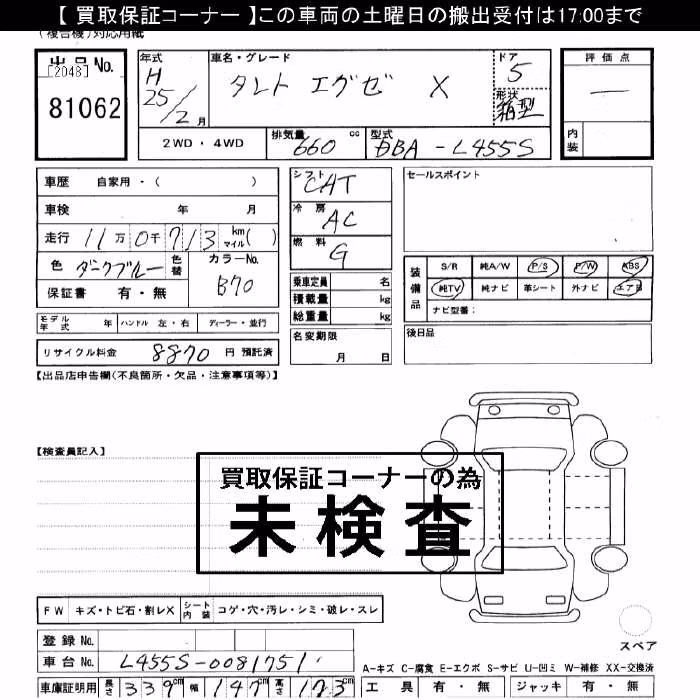 【 買取保証コーナー 】この車両の土曜日の搬出受付は17:00まで
(複合機)対応用紙
出品 No.
[2048]
81062
年式 H 25/2 月
車名・グレード
タント エグゼ X
ドア 5
形状 箱型
評価点
内装
2WD ・ 4WD
排気量 660 cc
型式 DBA-L455S
車歴 自家用 ・ ( )
車検 年 月
走行 11万0千713 km マイル ( )
色 ダークブルー 色替
カラーNo. B70
保証書 有 ・ 無
シフト CAT
冷房 AC
燃料 G
乗車定員 名
積載量 kg
総重量 kg
セールスポイント
装備品
S/R 純A/W P/S P/W ABS
純TV 純ナビ 革シート 外ナビ エアB
ナビ型番:
モデル年式 年 ハンドル 左 ・ 右 ディーラー ・ 並行
名変期限 月 日
後日品
リサイクル料金 8870 円 預託済
【出品店申告欄(不良箇所・欠品・注意事項等)】
【検査員記入】
買取保証コーナーの為
未検査
FW キズ・トビ石・割レX シート内装 コゲ・穴・汚レ・シミ・破レ・スレ
スペア
登録 No.
車台 No. L455S-0081751
A-キズ C-腐食 E-エクボ S-サビ U-凹ミ W-補修 XX-交換済
車庫証明用 長さ 339cm 幅 147cm 高さ 173cm
工具 有 ・ 無 ジャッキ 有 ・ 無